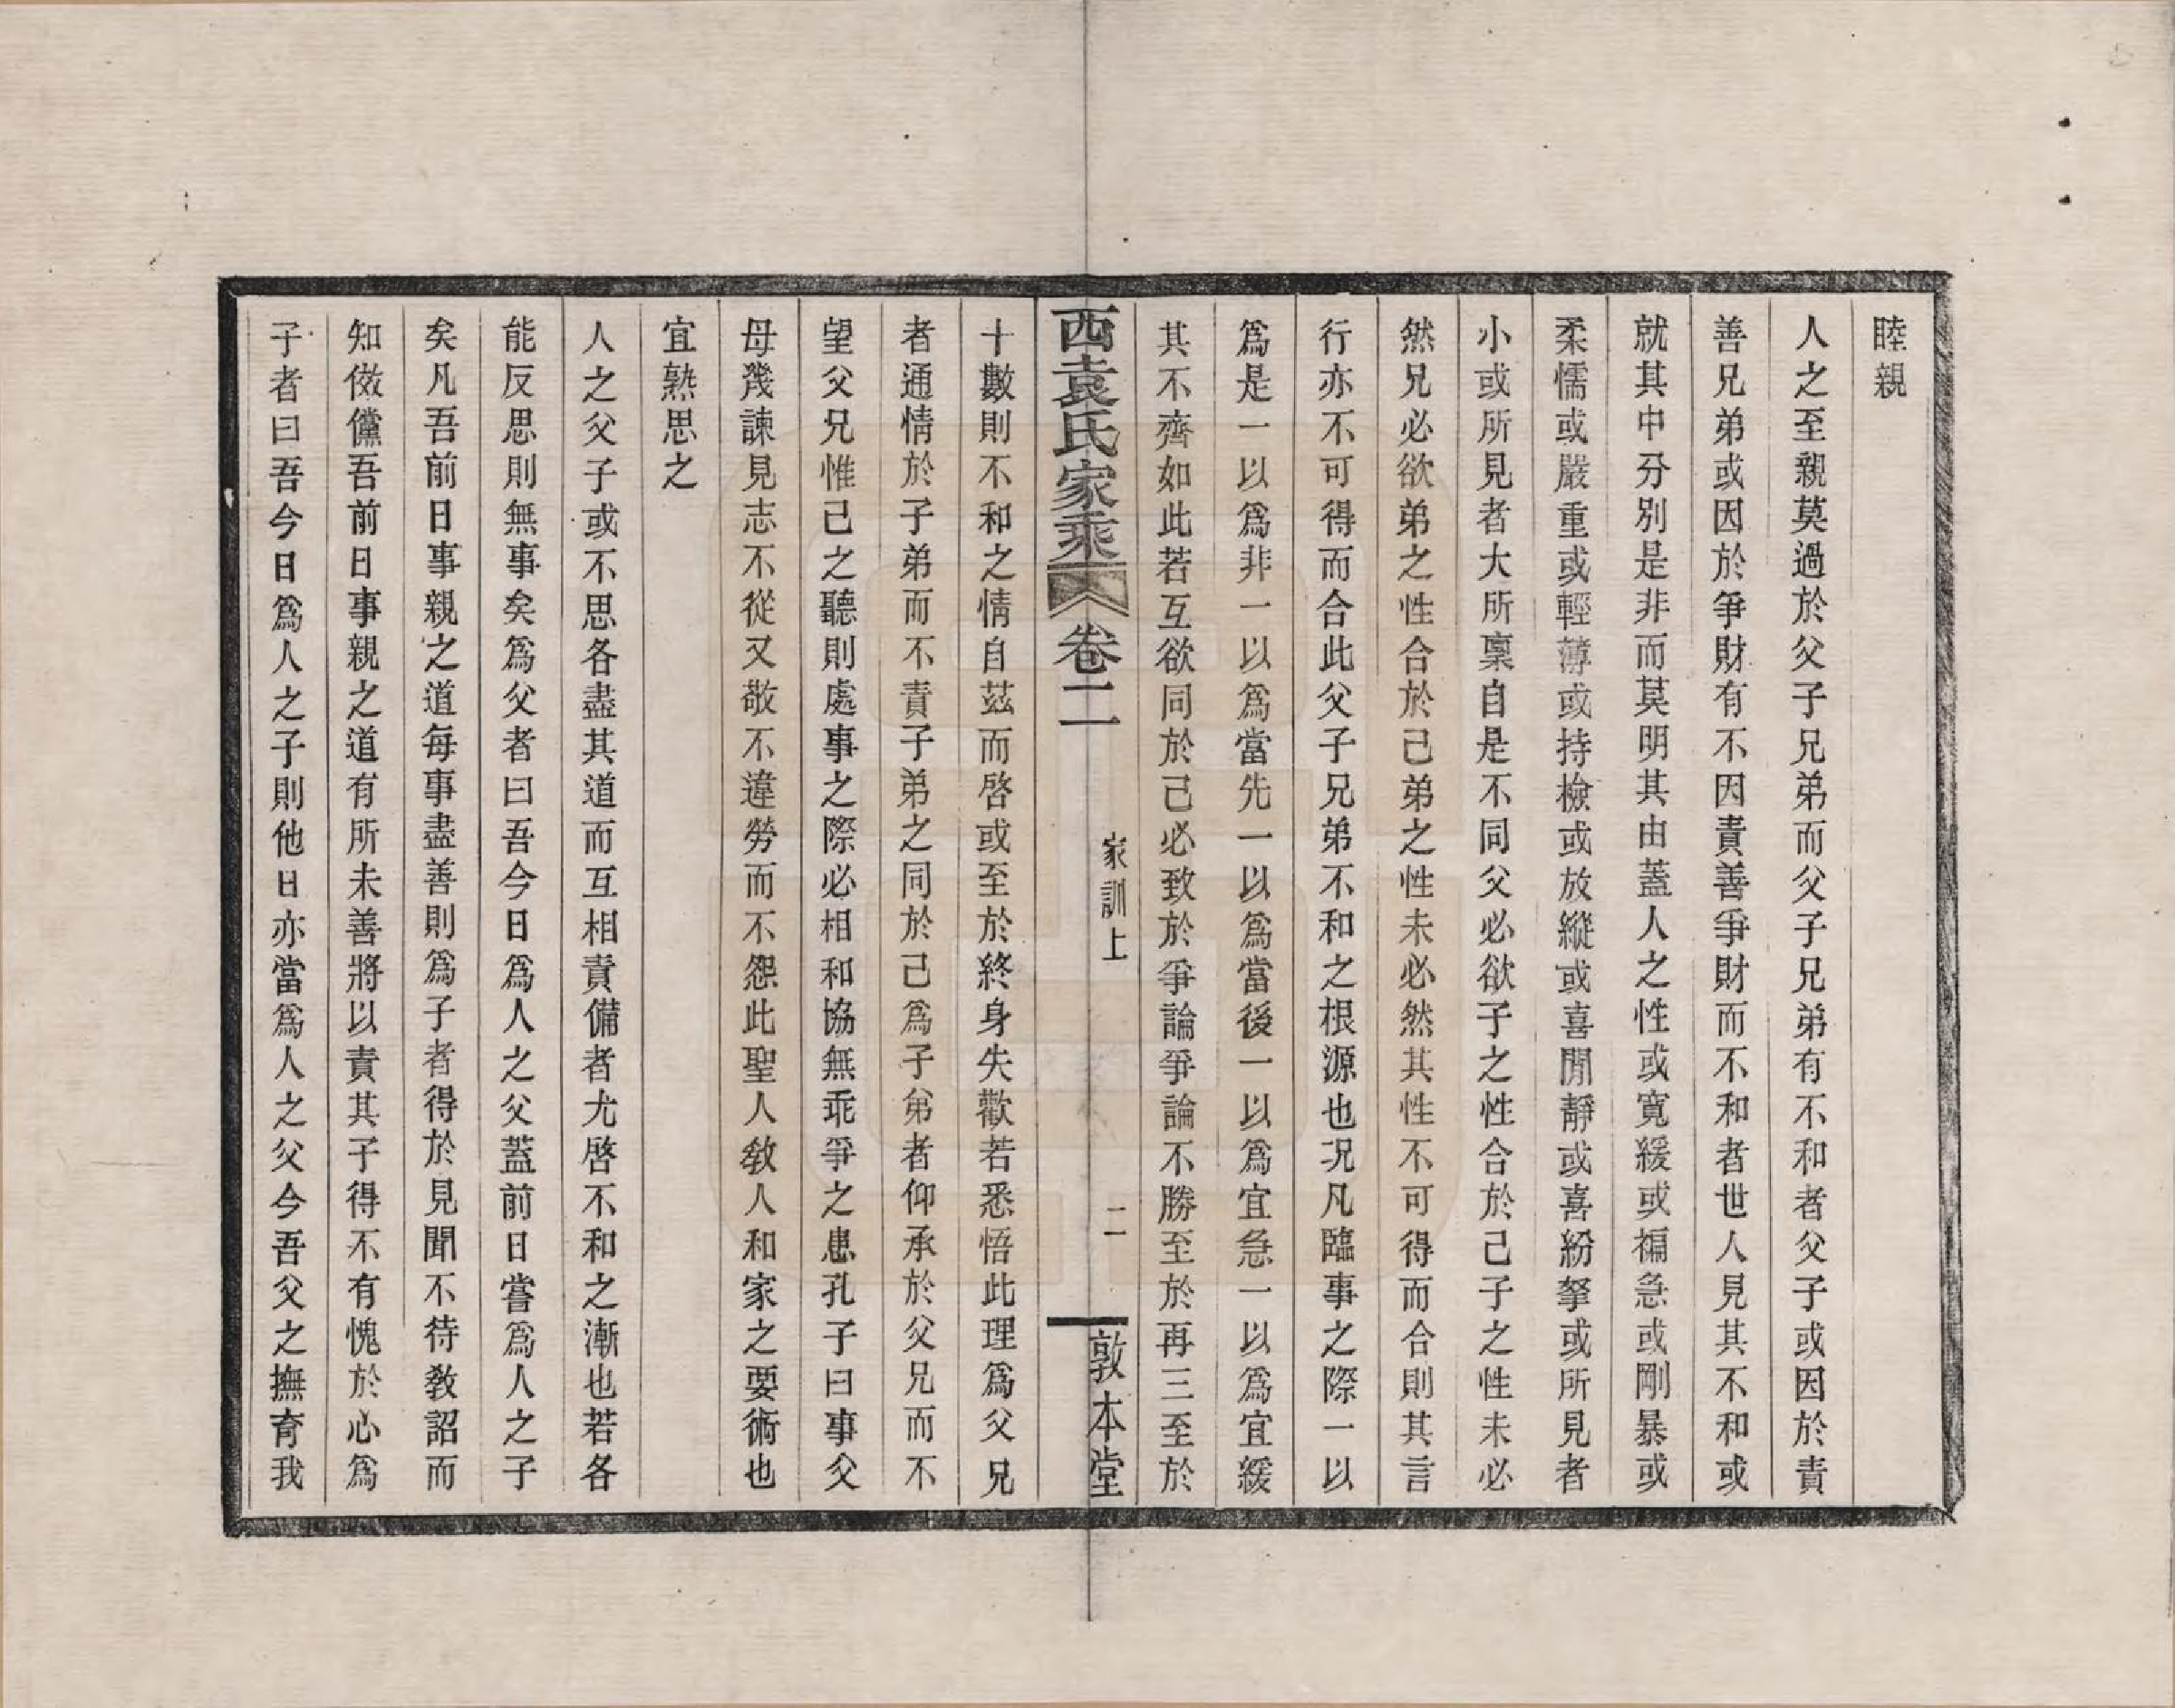 睦親
人之至親莫過於父子兄弟而父子兄弟有不和者父子或因於責
善兄弟或因於爭財有不因責善爭財而不和者世人見其不和或
就其中分別是非而莫明其由蓋人之性或寬緩或褊急或剛暴或
柔懦或嚴重或輕薄或持檢或放縱或喜閒靜或喜紛拏或所見者
小或所見者大所稟自是不同父必欲子之性合於己子之性未必
然兄必欲弟之性合於己弟之性未必然其性不可得而合則其言
行亦不可得而合此父子兄弟不和之根源也况凡臨事之際一以
爲是一以爲非一以爲當先一以爲當後一以爲宜急一以爲宜緩
其不齊如此若互欲同於己必致於爭論爭論不勝至於再三至於
西袁氏家乘 卷二 家訓上 二 敦本堂
十數則不和之情自茲而啓或至於終身失歡若悉悟此理爲父兄
者通情於子弟而不責子弟之同於己爲子弟者仰承於父兄而不
望父兄惟己之聽則處事之際必相和協無乖爭之患孔子曰事父
母幾諫見志不從又敬不違勞而不怨此聖人敎人和家之要術也
宜熟思之
人之父子或不思各盡其道而互相責備者尤啓不和之漸也若各
能反思則無事矣爲父者曰吾今日爲人之父蓋前日嘗爲人之子
矣凡吾前日事親之道每事盡善則爲子者得於見聞不待敎詔而
知傚儻吾前日事親之道有所未善將以責其子得不有愧於心爲
子者曰吾今日爲人之子則他日亦當爲人之父今吾父之撫育我